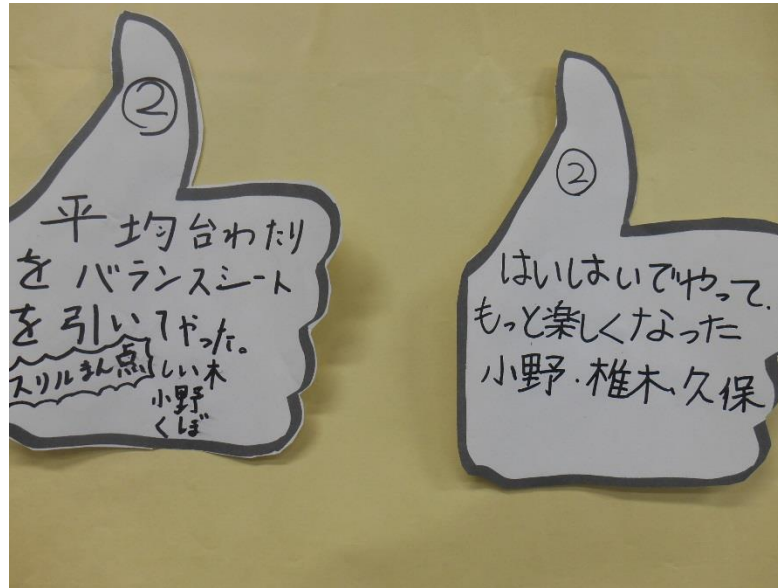 ②
平均台わたり
を バランスシート
を引いてやった。
スリルまん点
しい木
小野
くぼ
②
はいはいでやって、
もっと楽しくなった
小野・椎木・久保